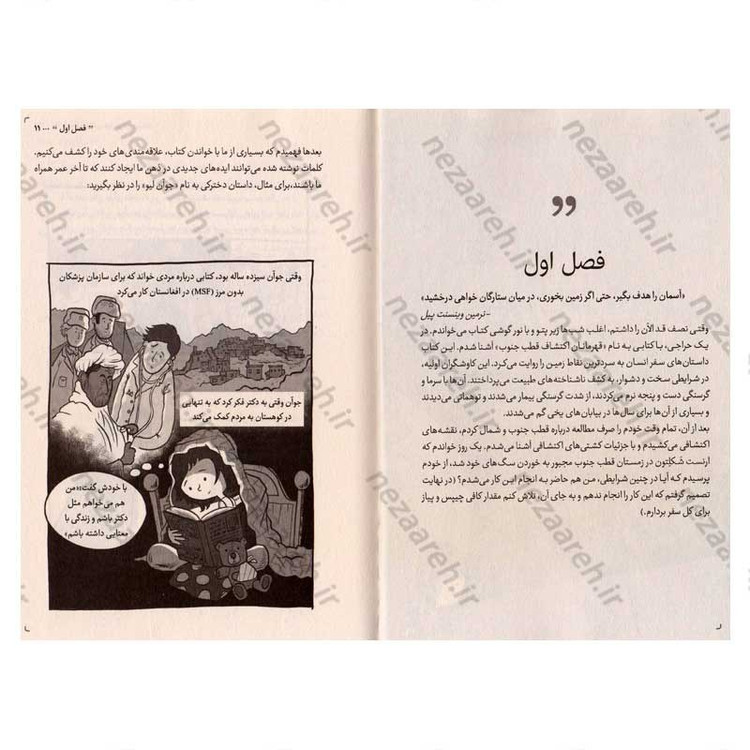 ”
فصل اول
«آسمان را هدف بگیر، حتی اگر زمین بخوری، در میان ستارگان خواهی درخشید»
-نرمین وینسنت پیل
وقتی نصف قد الآن را داشتم، اغلب شب‌ها زیر پتو و با نور گوشی کتاب می‌خواندم. در
یک حراجی، با کتابی به نام «قهرمانان اکتشاف قطب جنوب» آشنا شدم. این کتاب
داستان‌های سفر انسان به سردترین نقاط زمین را روایت می‌کرد. این کاوشگران اولیه،
در شرایطی سخت و دشوار، به کشف ناشناخته‌های طبیعت می‌پرداختند. آن‌ها با سرما و
گرسنگی دست و پنجه نرم می‌کردند، از شدت گرسنگی بیمار می‌شدند و توهماتی می‌دیدند
و بسیاری از آن‌ها برای سال‌ها در بیابان‌های یخی گم می‌شدند.
بعد از آن، تمام وقت خودم را صرف مطالعه درباره قطب جنوب و شمال کردم، نقشه‌های
اکتشافی می‌کشیدم و با جزئیات کشتی‌های اکتشافی آشنا می‌شدم. یک روز خواندم که
ارنست شَکِلتون در زمستان قطب جنوب مجبور به خوردن سگ‌های خود شد، از خودم
پرسیدم که آیا در چنین شرایطی، من هم حاضر به انجام این کار می‌شدم؟ (در نهایت
تصمیم گرفتم که این کار را انجام ندهم و به جای آن، تلاش کنم مقدار کافی چیپس و پیاز
برای کل سفر بردارم.)
” فصل اول “ ... ۱۱
بعدها فهمیدم که بسیاری از ما با خواندن کتاب، علاقه‌مندی‌های خود را کشف می‌کنیم.
کلمات نوشته شده می‌توانند ایده‌های جدیدی در ذهن ما ایجاد کنند که تا آخر عمر همراه
ما باشند،برای مثال، داستان دخترکی به نام «جوآن لیو» را در نظر بگیرید:
وقتی جوآن سیزده ساله بود، کتابی درباره مردی خواند که برای سازمان پزشکان
بدون مرز (MSF) در افغانستان کار می‌کرد
جوآن وقتی به دکتر فکر کرد که به تنهایی
در کوهستان به مردم کمک می‌کند
با خودش گفت:«من
هم می‌خواهم مثل
دکتر باشم و زندگی با
معنایی داشته باشم»
nezaareh.ir
nezaareh.ir
nezaareh.ir
nezaareh.ir
nezaareh.ir
nezaareh.ir